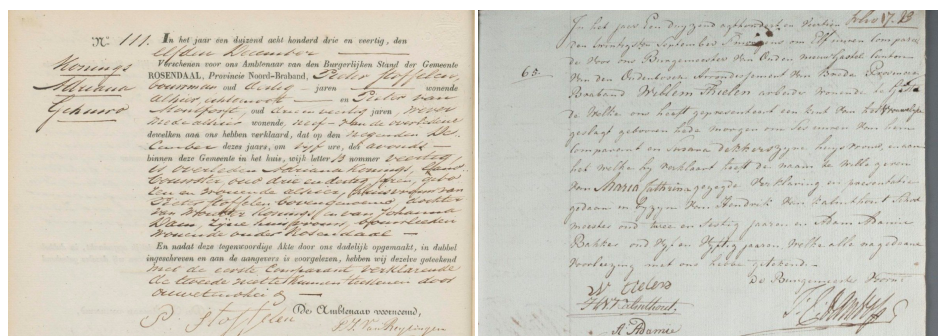 No. 111.
Konings
Adriana
Gehuwd
In het jaar een duizend acht honderd drie en veertig, den
elfden December
Verschenen voor ons Ambtenaar van den Burgerlijken Stand der Gemeente
ROSENDAAL, Provincie Noord-Braband, Pieter Stoffelen,
bouwman oud dertig jaren wonende
alhier, echtgenoot en Pieter van
oud veertig jaren,
mede alhier wonende, neef van de overledene
dewelken aan ons hebben verklaard, dat op den negenden De-
cember dezes jaars, om vyf ure, des avonds
binnen deze Gemeente in het huis, wijk letter B nommer veertig,
is overleden Adriana Konings, land-
bouwster oud drie en dertig jaren, gebo-
ren en wonende alhier, huisvrouw van
Pieter Stoffelen bovengenoemd, dochter
van Wouter Konings, en van Johanna
zijne huisvrouw,
wonende onder Rosendaal
En nadat deze tegenwoordige Akte door ons dadelijk opgemaakt, in dubbel
ingeschreven en aan de aangevers is voorgelezen, hebben wij dezelve geteekend
met de eerste Comparant verklarende
de tweede niet te kunnen teekenen door
onwetenheid
De Ambtenaar voornoemd,
P. Stoffelen
In het jaar Een duyzend agthonderd en Veertien folio 17.
den twintigsten September Smorgens om Elf uuren compareerde
de voor ons Burgemeester van Ouden en nieuw Gastel Canton
65.
Van Oudenbosch Arrondissement van Breda Provincie
Braband Willem Thielen arbeider wonende te Gastel
de Welke ons heeft gepresenteert een kint van het Vrouwelyke
geslagt geboren heden morgen om Ses uuren van hem
Comparant en Susana Dekkers zyne huysvrouw, en aan
het welke hy verklaart heeft de naam te wille geven
Van Maria Cathrina gezegde Verklaring en presentatie
gedaan en byzyn van Hendrik van Kalmthout School
meester oud twee en Sestig jaaren en Adam Damie
Bakker oud Vyf en Vyftig jaaren, Welke alle na gedaane
Voorlezing met ons hebben getekend.
De Burgemeester Voorn:
H. V. Kalmthout.
A Damie